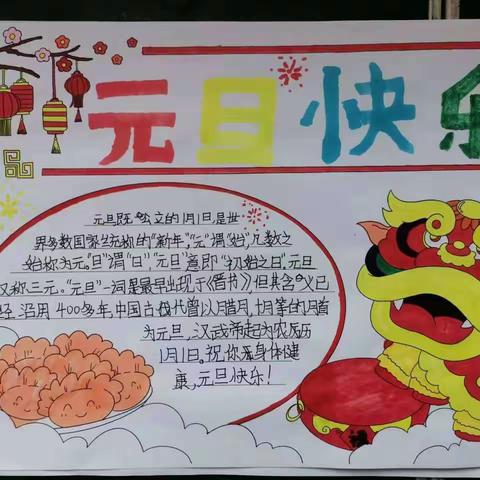 元旦快乐
元旦既“公立的1月1日,是世
界多数国家坐充称的“新年”,“元”谓“始”,凡数之
始称为元。“旦”谓“日”,“元旦”意即“初始之日”,元旦
又称三元。“元旦”一词最早出现于《晋书》但其含义已
经 沿用 400多年,中国古
代曾以腊月、十月等的月首
为元旦,汉武帝起为农历
1月1日,祝,你 身体健
康,元旦快乐!